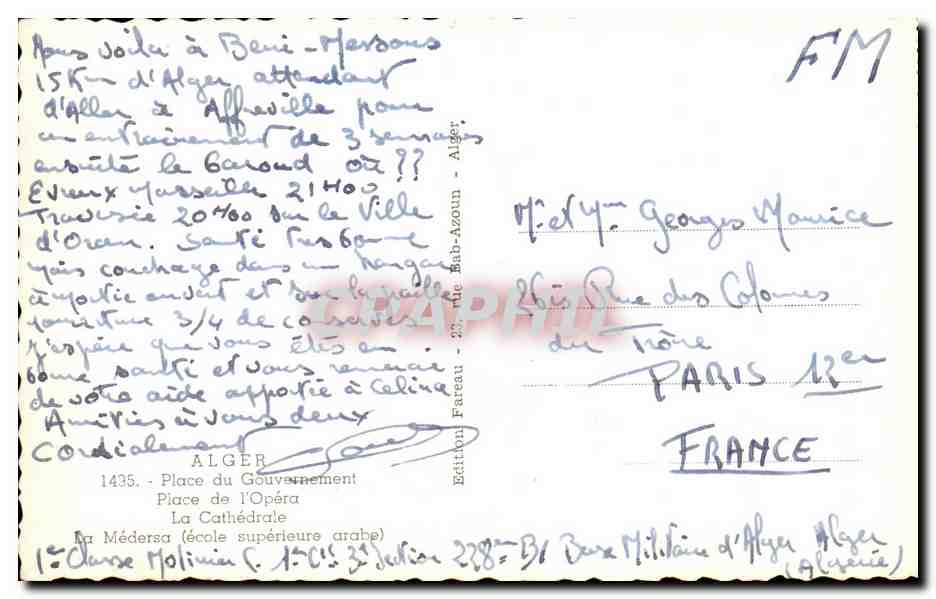 Nous voila à Beni-Messous
15 Km d'Alger attendant
d'Aller à Affreville pour
un entrainement de 3 semaines
ensuite le baroud où ??
Evreux Marseille 21H00
Traversée 20H00 sur le Ville
d'Oran. Santé tres bonne
mais couchage dans un hangar
à moitie ouvert et sur la paille
nourriture 3/4 de conserves
J'espère que vous êtes en
bonne santé et vous remercie
de votre aide apportée à Celina
Amitiés à vous deux
Cordialement
ALGER
1435. - Place du Gouvernement
Place de l'Opéra
La Cathédrale
La Médersa (école supérieure arabe)
1er Classe Molinier C. 1ere Cie 3e Section 228em BI Base Militaire d'Alger Alger
(Algérie)
Edition Fareau - 23, rue Bab-Azoun - Alger
FM
Mr et Mme Georges Maurice
26is Rue des Colonnes
du Trône
PARIS 12em
FRANCE
CPAPHIL